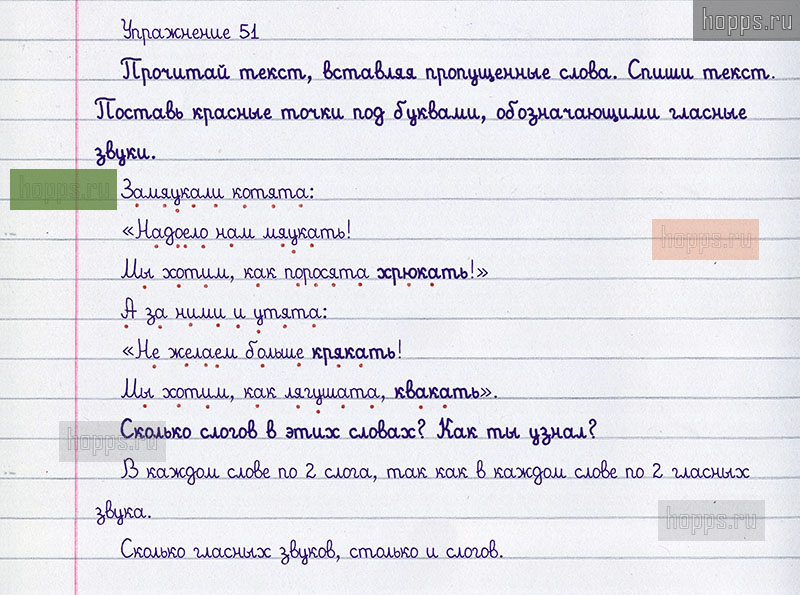 hopps.ru
Упражнение 51
Прочитай текст, вставляя пропущенные слова. Спиши текст.
Поставь красные точки под буквами, обозначающими гласные
звуки.
hopps.ru
Замяукали котята:
«Надоело нам мяукать!
hopps.ru
Мы хотим, как поросята хрюкать!»
А за ними и утята:
«Не желаем больше крякать!
Мы хотим, как лягушата, квакать».
hopps.ru
Сколько слогов в этих словах? Как ты узнал?
В каждом слове по 2 слога, так как в каждом слове по 2 гласных
звука.
hopps.ru
Сколько гласных звуков, столько и слогов.